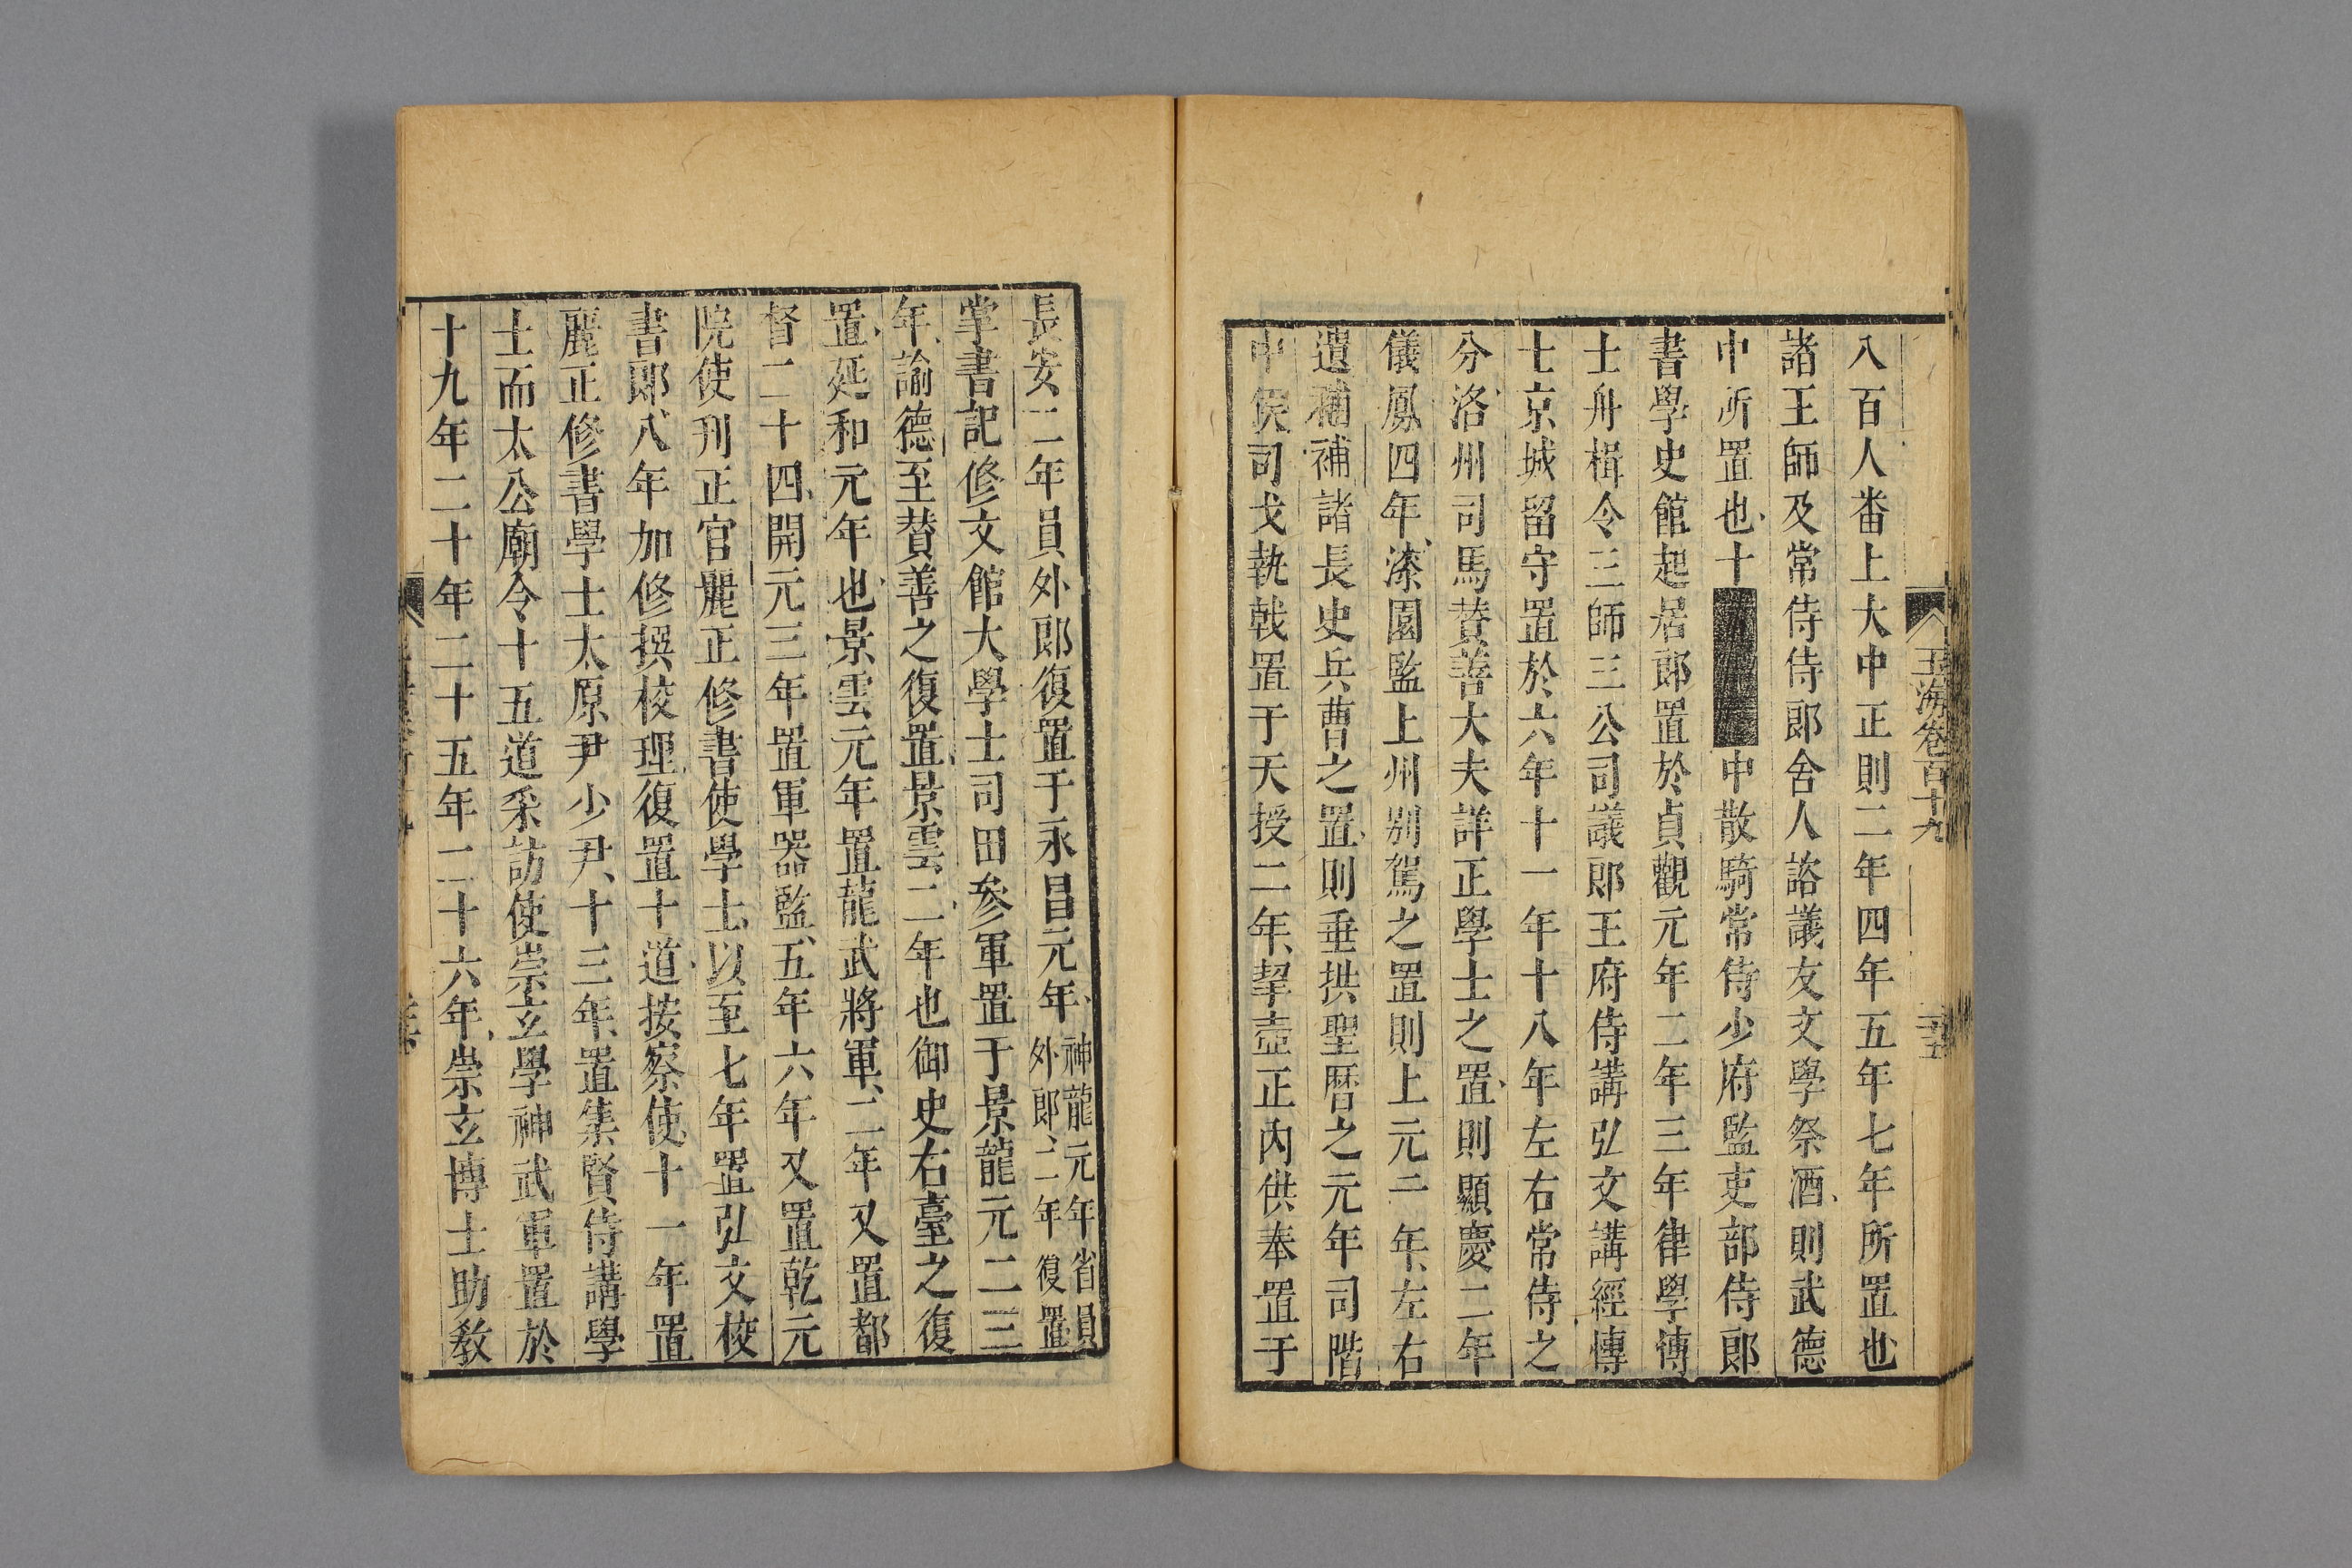 玉海卷百十九
八百人番上大中正則二年四年五年七年所置也
諸王師及常侍侍郎舍人諮議友文學祭酒則武德
中所置也十中散騎常侍少府監吏部侍郎
書學史館起居郎置於貞觀元年二年三年律學博
士舟楫令三師三公司議郎王府侍講弘文講經博
士京城留守置於六年十一年十八年左右常侍之
分洛州司馬贊善大夫詳正學士之置則顯慶二年
儀鳳四年漆園監上州別駕之置則上元二年左右
遺補補諸長史兵曹之置則垂拱聖曆之元年司階
中侯司戈執戟置于天授二年挈壺正內供奉置于
長安二年員外郎復置于永昌元年神龍元年省員外郎二年復置
掌書記修文館大學士司田參軍置于景龍元二三
年諭德至贊善之復置景雲二年也御史右臺之復
置延和元年也景雲元年置龍武將軍二年又置都
督二十四開元三年置軍器監五年六年又置乾元
院使刊正官麗正修書使學士以至七年置弘文校
書郎八年加修撰校理復置十道按察使十一年置
麗正修書學士太原尹少尹十三年置集賢侍講學
士而太公廟令十五道采訪使崇玄學神武軍置於
十九年二十年二十五年二十六年崇玄博士助教